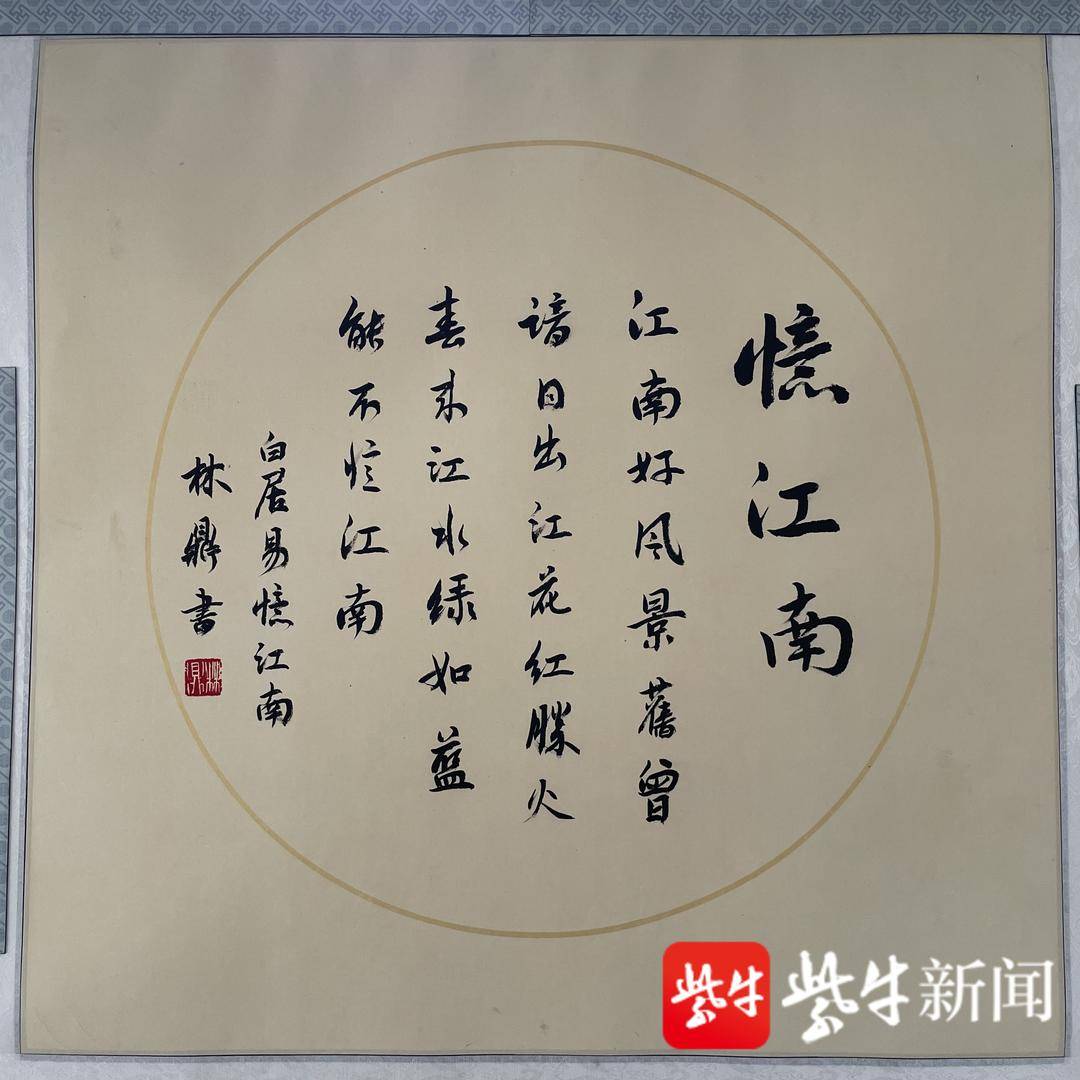 憶江南
江南好风景舊曾
谙日出江花红勝火
春来江水绿如蓝
能不忆江南
白居易憶江南
林鼎书
紫牛
紫牛新闻